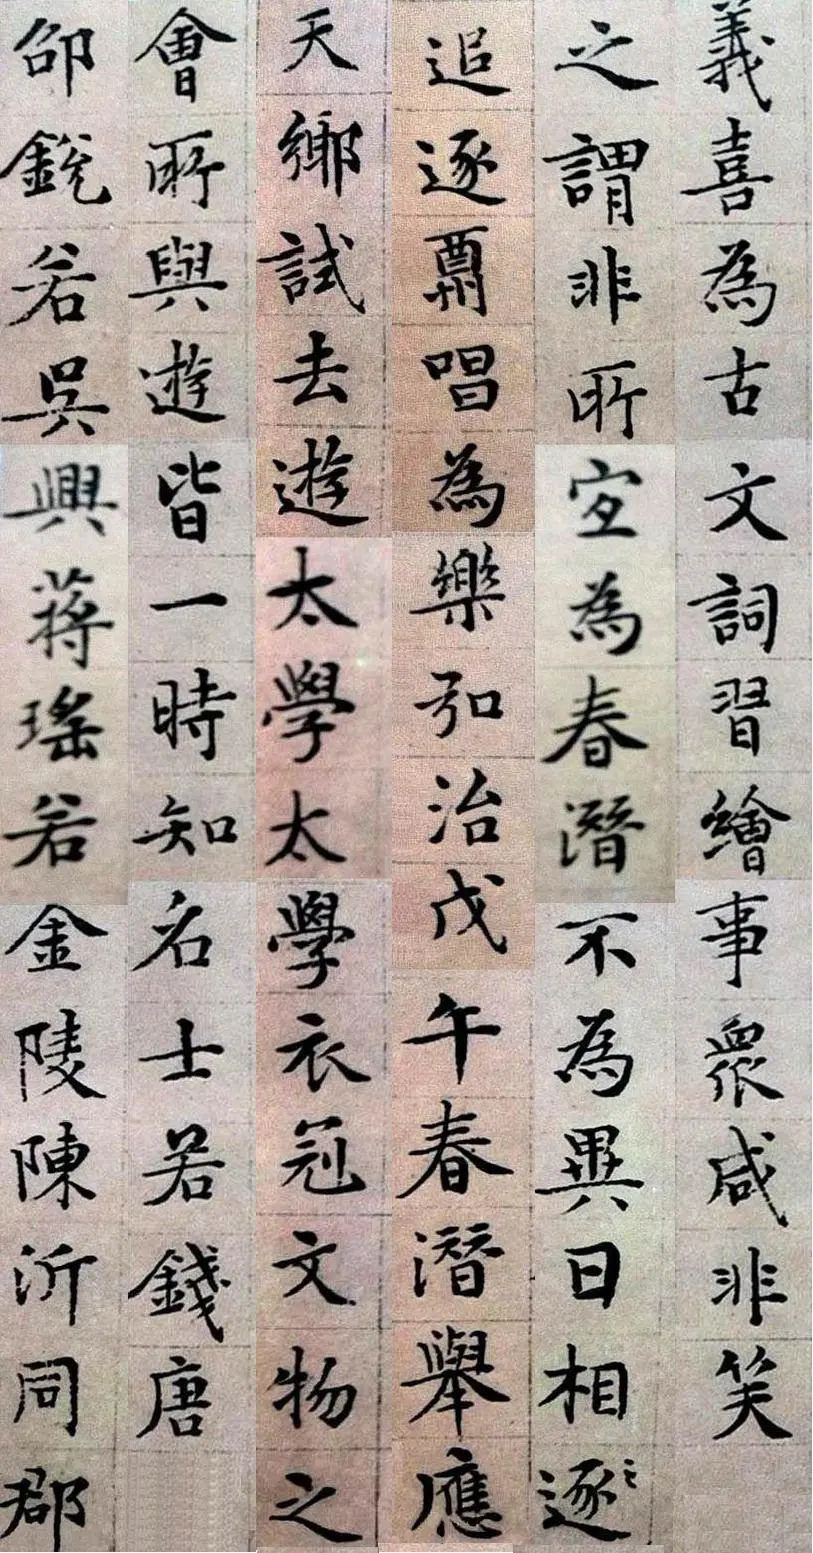 義喜為古文詞習繪事衆咸非笑
之謂非所宜為春潛不為異日相逐〻
追逐賡唱為樂弘治戊午春潛舉應
天鄉試去遊太學太學衣冠文物之
會所與遊皆一時知名士若錢唐
邵銳若吳興蔣瑤若金陵陳沂同郡